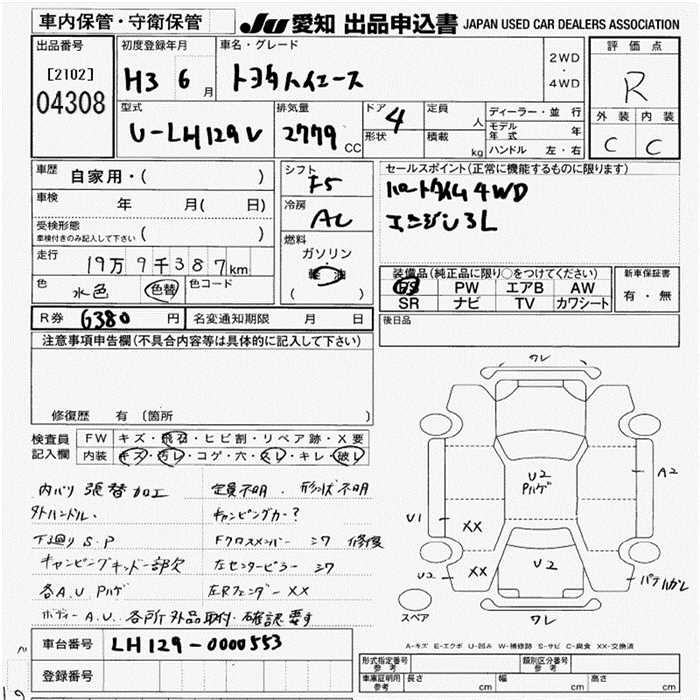 車内保管・守衛保管
JU 愛知 出品申込書 JAPAN USED CAR DEALERS ASSOCIATION
出品番号
[2102]
04308
初度登録年月
H3 6 月
車名・グレード
トヨタハイエース
2WD
・
4WD
評価点
R
外装 内装
C C
型式
U-LH129V
排気量
2779 CC
ドア 4
形状
定員 人
積載 kg
ディーラー・並 行
モデル年式 年
ハンドル 左・右
車歴
自家用・( )
車検
年 月( 日)
受検形態
車検付きのみ記入して下さい ( )
走行
19万9千387km
色
水色 色替
色コード
シフト
F5
冷房
AC
燃料
ガソリン
軽油
( )
セールスポイント(正常に機能するものに限ります)
パートタイム4WD
エンジン3L
装備品(純正品に限り○をつけてください)
PS PW エアB AW
SR ナビ TV カワシート
新車保証書
有・無
R券 6380 円
名変通知期限 月 日
後日品
注意事項申告欄(不具合内容等は具体的に記入して下さい)
修復歴 有 (箇所 )
検査員
記入欄
FW キズ・飛石・ヒビ割・リペア跡・X要
内装 キズ・汚レ・コゲ・穴・スレ・キレ・破レ
内バリ張替加工
定員不明.形状不明
外ハンドル.
キャンピングカー?
下廻りS.P
Fクロスメンバー シワ 修復
キャンピングキット一部欠
左センターピラー シワ
各A.U Pハゲ
左Rフェンダー XX
ボディーA.U.各所外品取付.確認要す
ワレ
U2
Pハゲ
A2
U1
XX
U2
XX
U2
バテハガレ
ワレ
スペア
A-キズ E-エクボ U-凹み W-補修跡 S-サビ C-腐食 XX-交換済
車台番号
LH129-0000553
登録番号
形式指定番号
参考
類別区分番号
参考
車庫証明用
参考
長さ cm
幅 cm
高さ cm